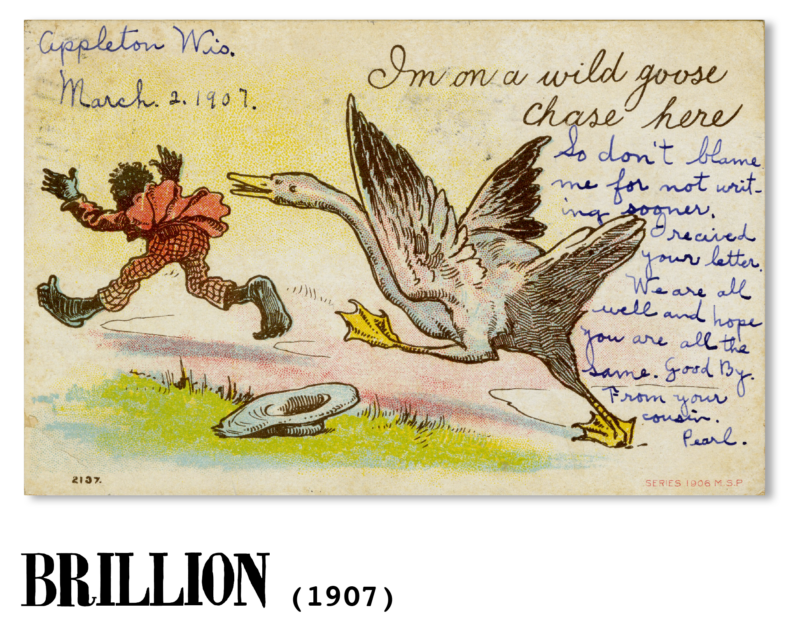 Appleton Wis.
March. 2. 1907.
I'm on a wild goose
chase here
So don't blame
me for not writ-
ing sooner.
I recived
your letter.
We are all
well and hope
you are all the
same. Good By.
From your
cousin.
Pearl.
2137.
SERIES 1906 M.S.P.
BRILLION (1907)